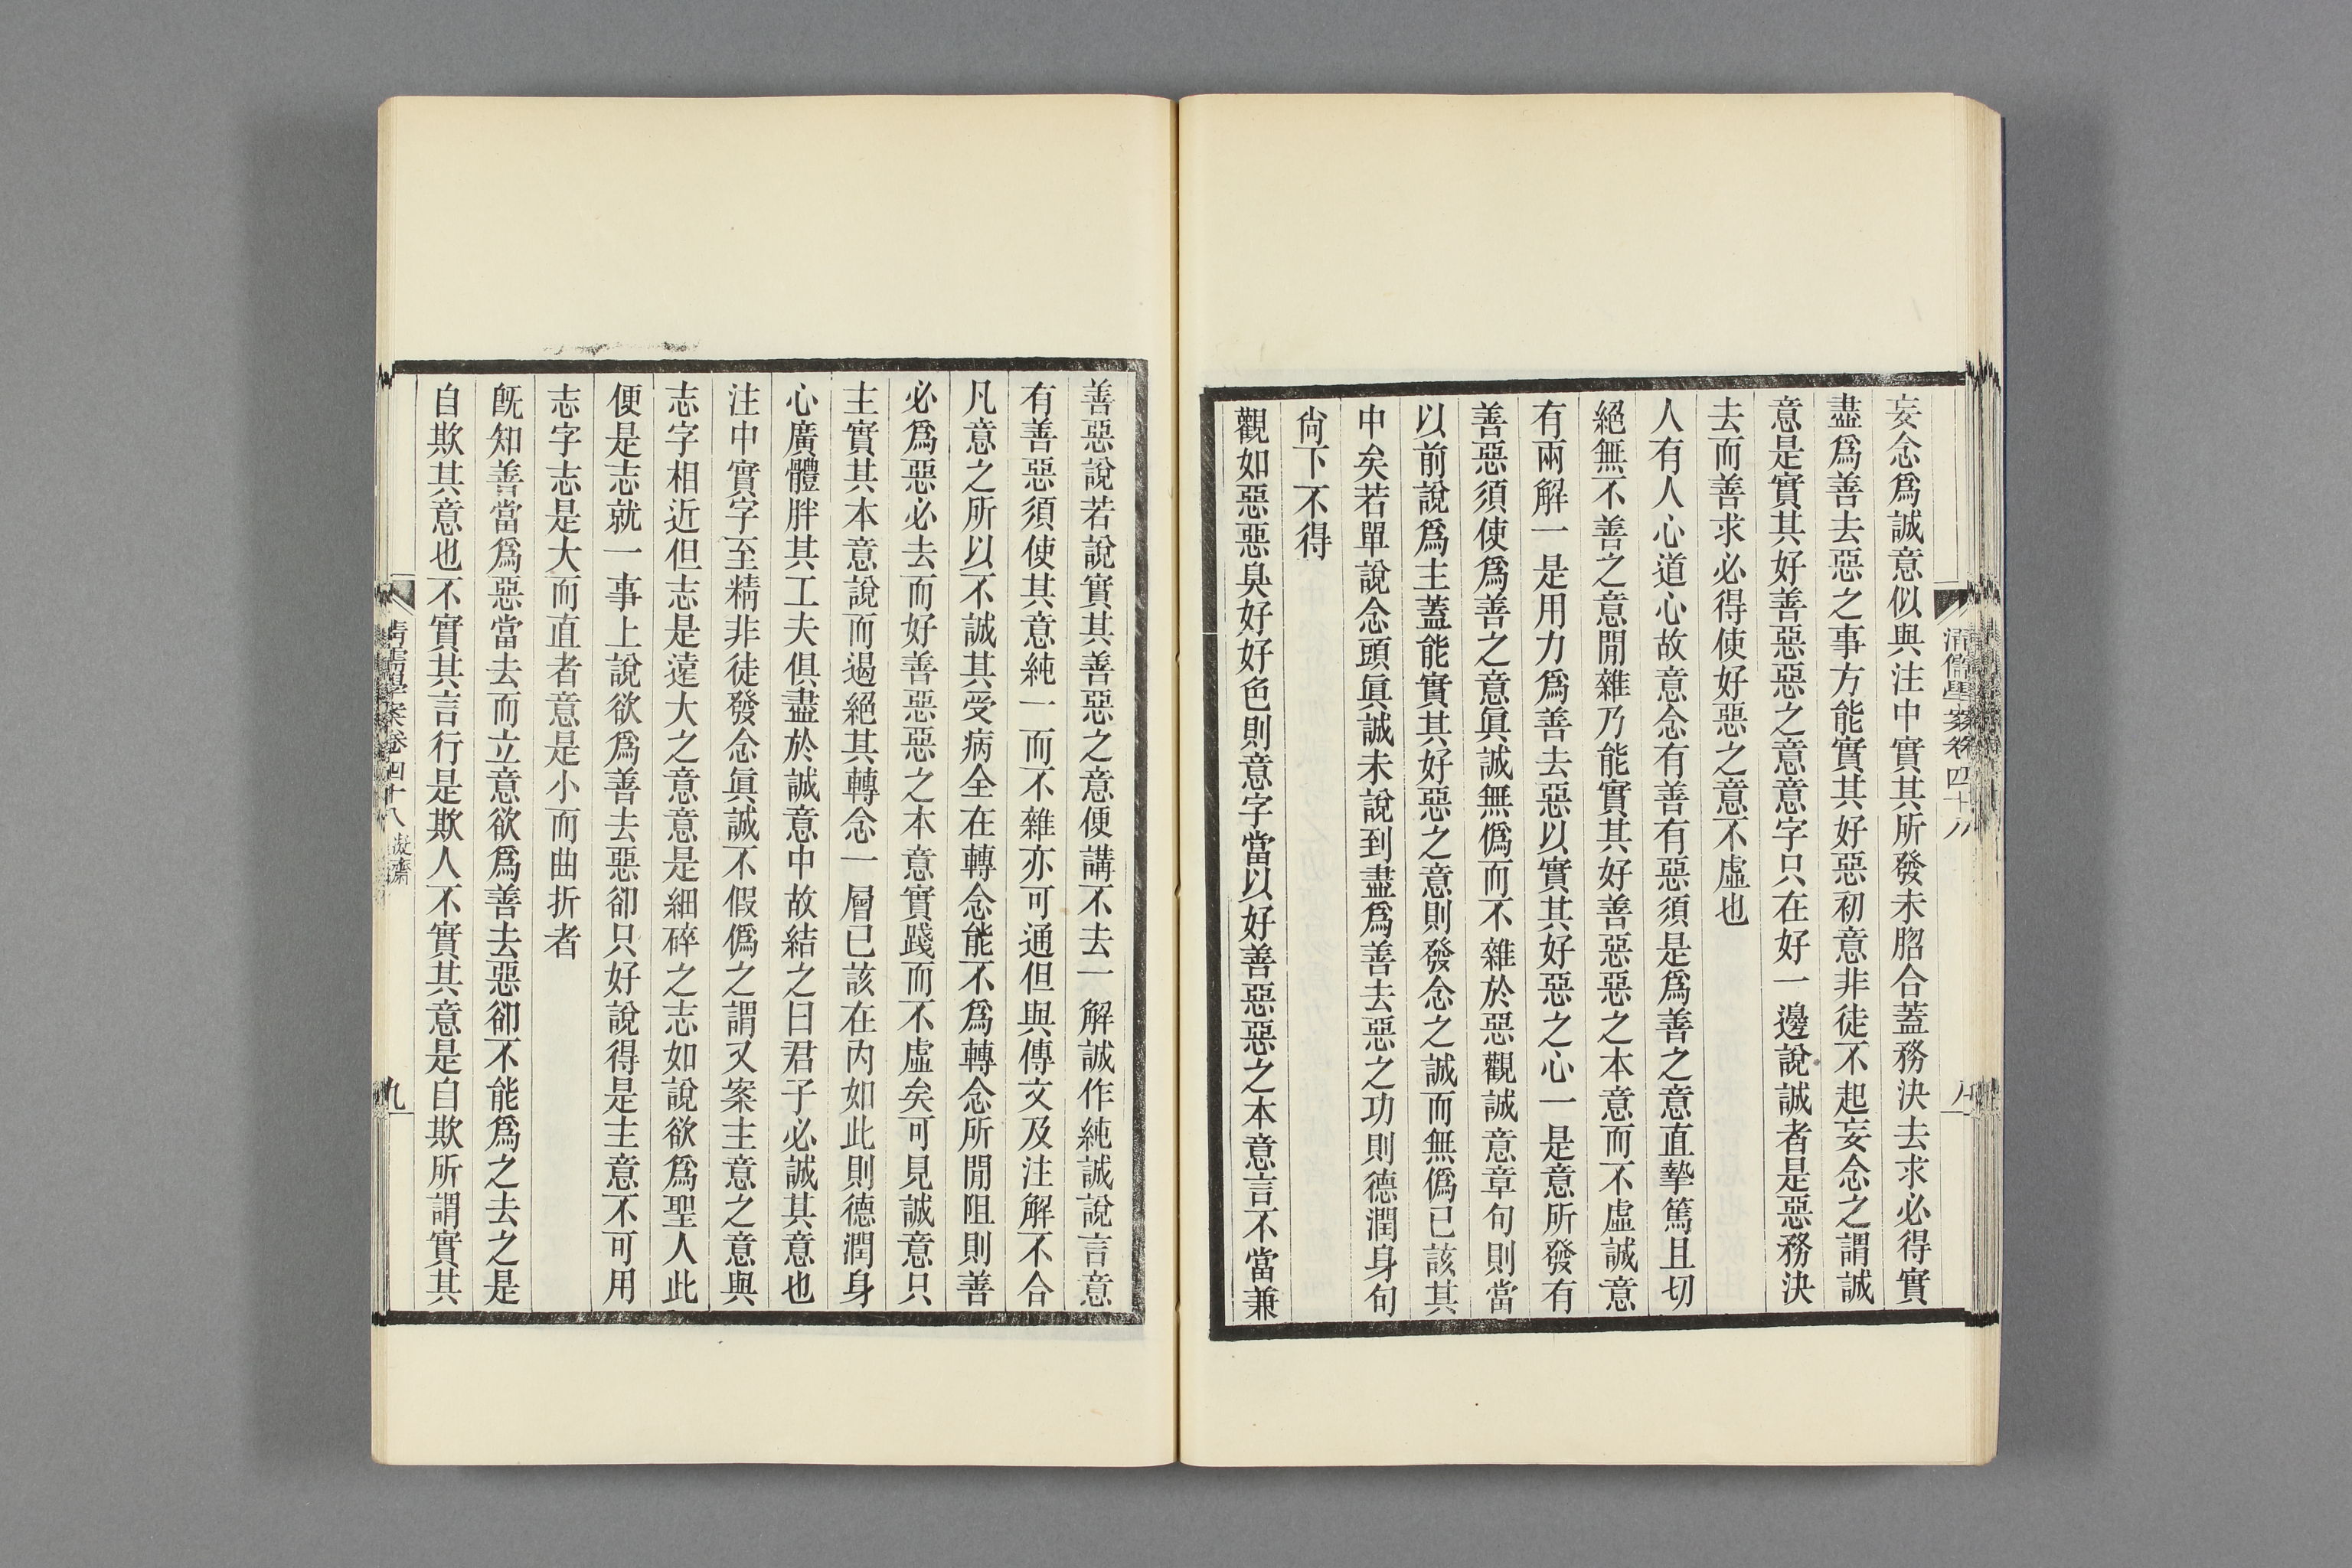 清儒學案卷四十八
八
妄念爲誠意似與注中實其所發未脗合蓋務決去求必得實
盡爲善去惡之事方能實其好惡初意非徒不起妄念之謂誠
意是實其好善惡惡之意意字只在好一邊說誠者是惡務決
去而善求必得使好惡之意不虛也
人有人心道心故意念有善有惡須是爲善之意直摯篤且切
絕無不善之意閒雜乃能實其好善惡惡之本意而不虛誠意
有兩解一是用力爲善去惡以實其好惡之心一是意所發有
善惡須使爲善之意眞誠無僞而不雜於惡觀誠意章句則當
以前說爲主蓋能實其好惡之意則發念之誠而無僞已該其
中矣若單說念頭眞誠未說到盡爲善去惡之功則德潤身句
尙下不得
觀如惡惡臭好好色則意字當以好善惡惡之本意言不當兼
善惡說若說實其善惡之意便講不去一解誠作純誠說言意
有善惡須使其意純一而不雜亦可通但與傳文及注解不合
凡意之所以不誠其受病全在轉念能不爲轉念所閒阻則善
必爲惡必去而好善惡惡之本意實踐而不虛矣可見誠意只
主實其本意說而遏絕其轉念一層已該在內如此則德潤身
心廣體胖其工夫俱盡於誠意中故結之曰君子必誠其意也
注中實字至精非徒發念眞誠不假僞之謂又案主意之意與
志字相近但志是遠大之意意是細碎之志如說欲爲聖人此
便是志就一事上說欲爲善去惡卻只好說得是主意不可用
志字志是大而直者意是小而曲折者
旣知善當爲惡當去而立意欲爲善去惡卻不能爲之去之是
自欺其意也不實其言行是欺人不實其意是自欺所謂實其
清儒學案卷四十八 凝齋
九